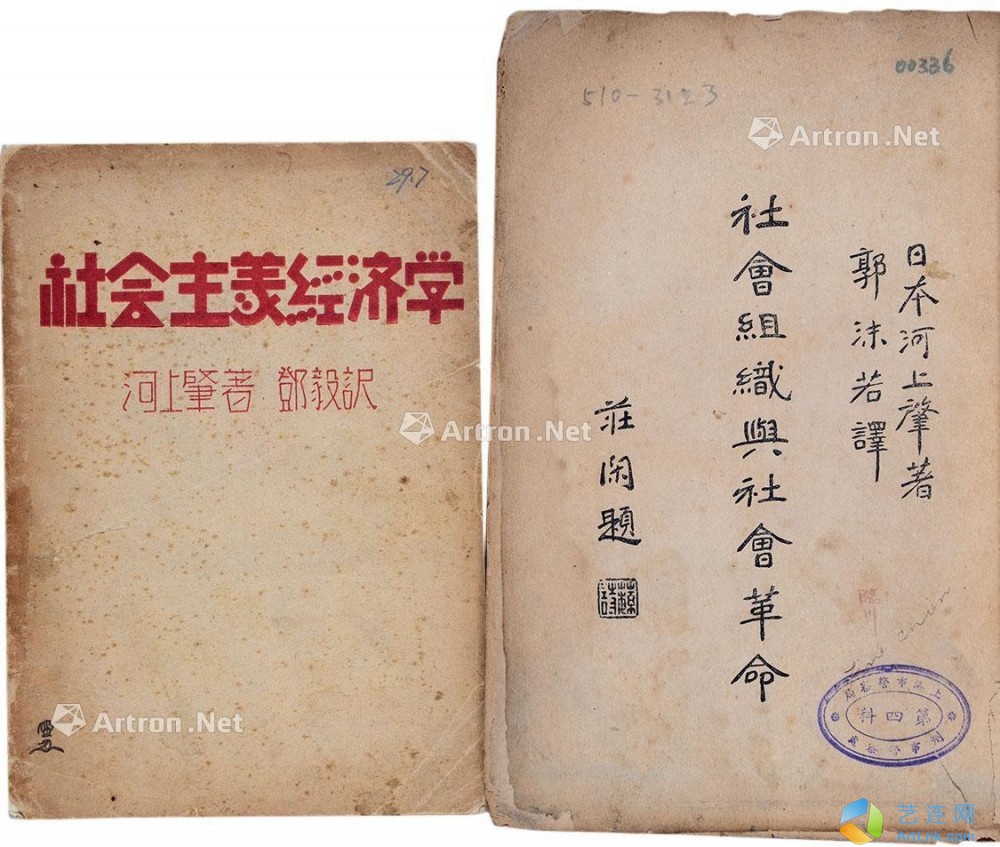 29.7
社会主義経済学
河上肇著 鄧毅訳
Artron.Net
Artron.Net
00336
510-3123
Artron.Net
日本河上肇著
郭沫若譯
社會組織與社會革命
莊閑題
臨川
上海市警察局
第四科
刑事警察處
艺连网